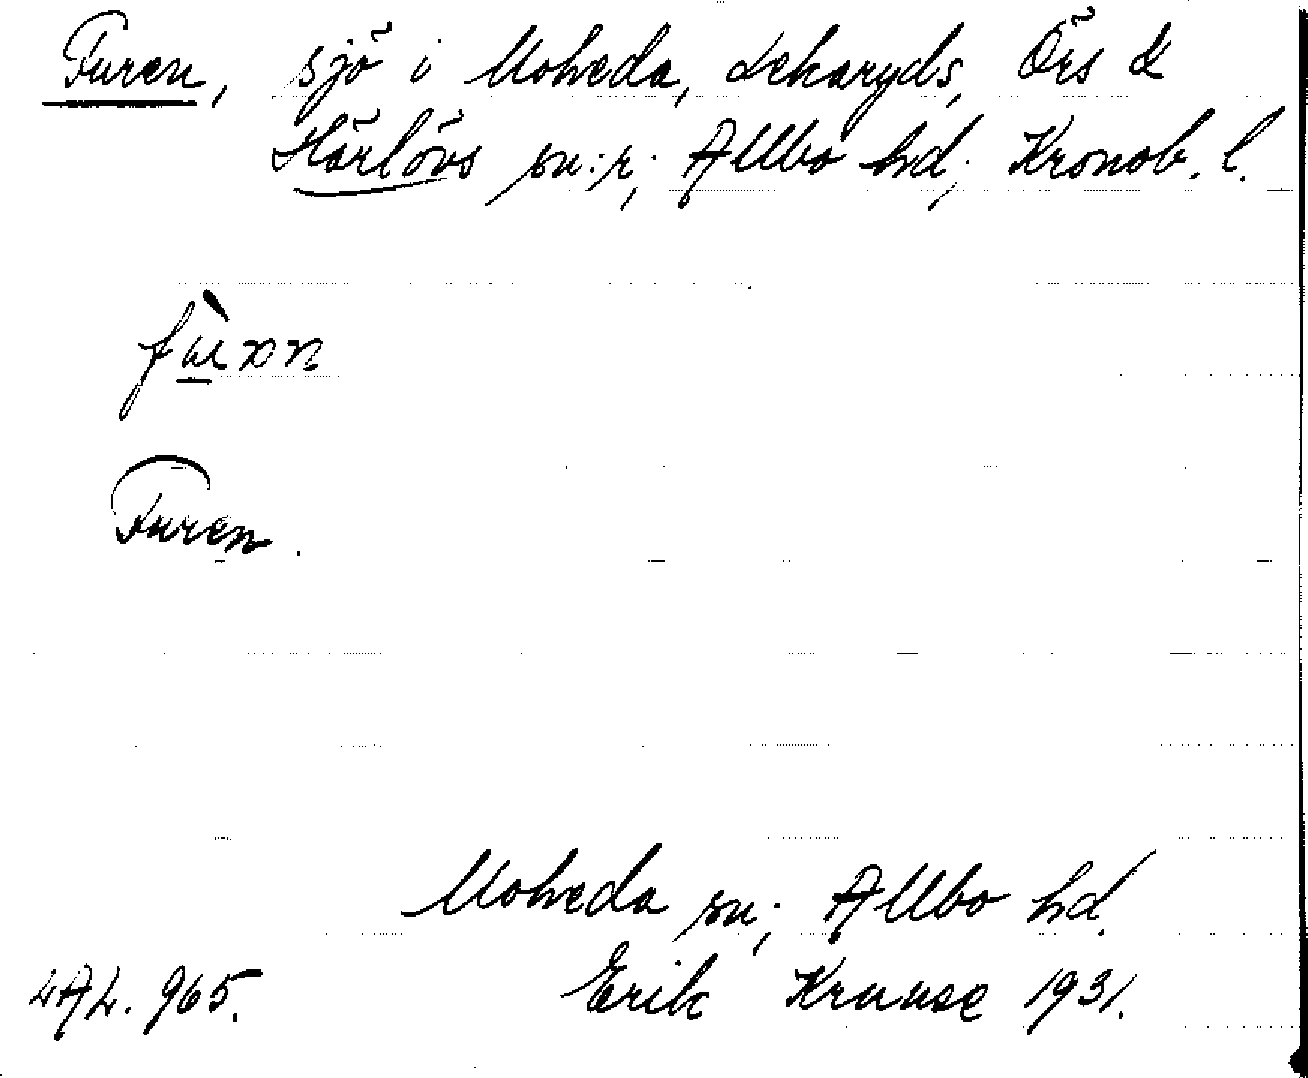 Furen, sjö i Moheda, Lekaryds, Örs &
Härlövs sn:r; Allbo hd; Kronob. l.
Furen.
Moheda sn; Allbo hd.
LAL. 965. Erik Kruuse 1931.